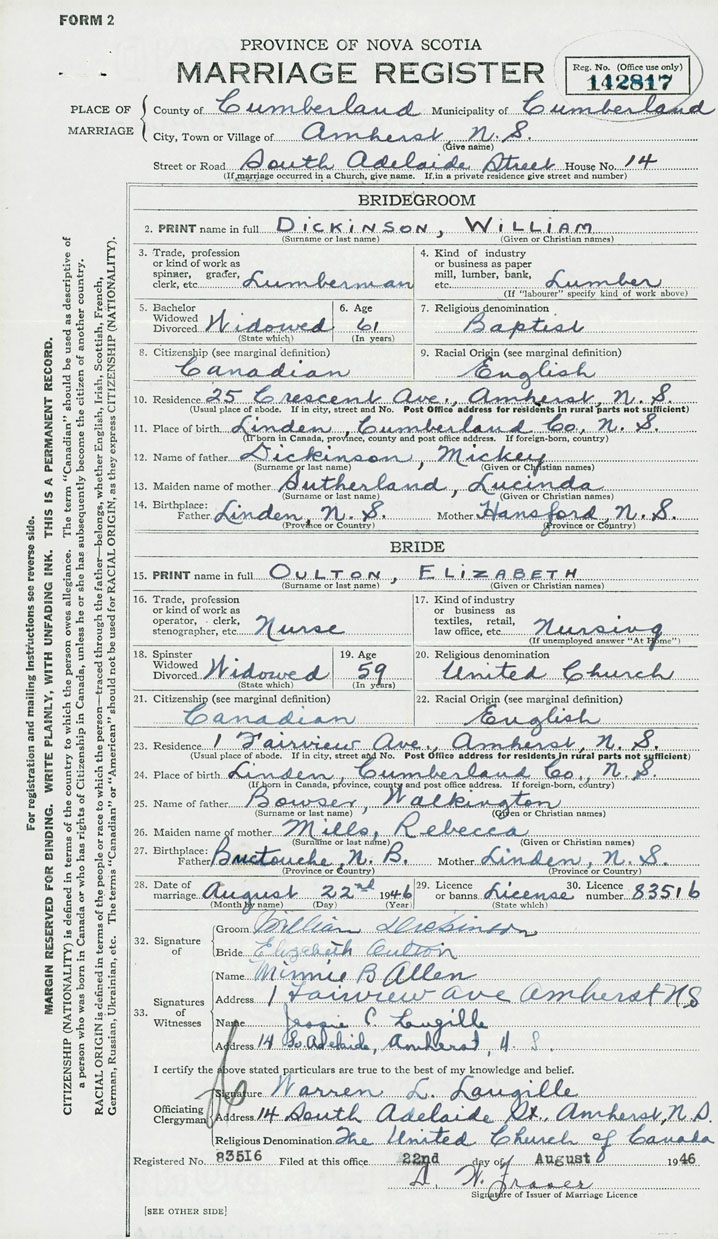 FORM 2
PROVINCE OF NOVA SCOTIA
MARRIAGE REGISTER
Reg. No. (Office use only)
142817
PLACE OF MARRIAGE
County of Cumberland Municipality of Cumberland
City, Town or Village of Amherst, N.S.
(Give name)
Street or Road South Adelaide Street House No. 14
(If marriage occurred in a Church, give name. If, in a private residence give street and number)
BRIDEGROOM
2. PRINT name in full DICKINSON, WILLIAM
(Surname or last name) (Given or Christian names)
3. Trade, profession or kind of work as spinner, grader, clerk, etc. Lumberman
4. Kind of industry or business as paper mill, lumber, bank, etc. Lumber
(If "labourer" specify kind of work above)
5. Bachelor Widowed Divorced Widowed
(State which)
6. Age 61
(In years)
7. Religious denomination
Baptist
8. Citizenship (see marginal definition)
Canadian
9. Racial Origin (see marginal definition)
English
10. Residence 25 Crescent Ave., Amherst, N.S.
(Usual place of abode. If in city, street and No. Post Office address for residents in rural parts not sufficient)
11. Place of birth Linden, Cumberland Co., N.S.
(If born in Canada, province, county and post office address. If foreign-born, country)
12. Name of father Dickinson, Mickey
(Surname or last name) (Given or Christian names)
13. Maiden name of mother Sutherland, Lucinda
(Surname or last name) (Given or Christian names)
14. Birthplace: Father Linden, N.S. Mother Hansford, N.S.
(Province or Country) (Province or Country)
BRIDE
15. PRINT name in full OULTON, ELIZABETH
(Surname or last name) (Given or Christian names)
16. Trade, profession or kind of work as operator, clerk, stenographer, etc. Nurse
17. Kind of industry or business as textiles, retail, law office, etc. Nursing
(If unemployed answer "At Home")
18. Spinster Widowed Divorced Widowed
(State which)
19. Age 59
(In years)
20. Religious denomination
United Church
21. Citizenship (see marginal definition)
Canadian
22. Racial Origin (see marginal definition)
English
23. Residence 1 Fairview Ave., Amherst, N.S.
(Usual place of abode. If in city, street and No. Post Office address for residents in rural parts not sufficient)
24. Place of birth Linden, Cumberland Co., N.S.
(If born in Canada, province, county and post office address. If foreign-born, country)
25. Name of father Bowser, Walkington
(Surname or last name) (Given or Christian names)
26. Maiden name of mother Mills, Rebecca
(Surname or last name) (Given or Christian names)
27. Birthplace: Father Buctouche, N.B. Mother Linden, N.S.
(Province or Country) (Province or Country)
28. Date of marriage August 22nd 1946 29. Licence or banns License 30. Licence number 83516
(Month by name) (Day) (Year) (State which)
32. Signature of
Groom William Dickinson
Bride Elizabeth Oulton
33. Signatures of Witnesses
Name Minnie B Allen
Address 1 Fairview ave Amherst N S
Name Jessie C. Lougille
Address 14 So. Adelaide, Amherst, N. S.
I certify the above stated particulars are true to the best of my knowledge and belief.
Officiating Clergyman
Signature Warren L. Lougille
Address 14 South Adelaide St. Amherst, N.S.
Religious Denomination The United Church of Canada
Registered No. 83516 Filed at this office 22nd day of August 1946
D. W. Fraser
Signature of Issuer of Marriage Licence
[SEE OTHER SIDE]
For registration and mailing instructions see reverse side.
MARGIN RESERVED FOR BINDING. WRITE PLAINLY, WITH UNFADING INK. THIS IS A PERMANENT RECORD.
CITIZENSHIP (NATIONALITY) is defined in terms of the country to which the person owes allegiance. The term "Canadian" should be used as descriptive of
a person who was born in Canada or who has rights of Citizenship in Canada, unless he or she has subsequently become the citizen of another country.
RACIAL ORIGIN is defined in terms of the people or race to which the person—traced through the father—belongs, whether English, Irish, Scottish, French,
German, Russian, Ukrainian, etc. The terms "Canadian" or "American" should not be used for RACIAL ORIGIN, as they express CITIZENSHIP (NATIONALITY).